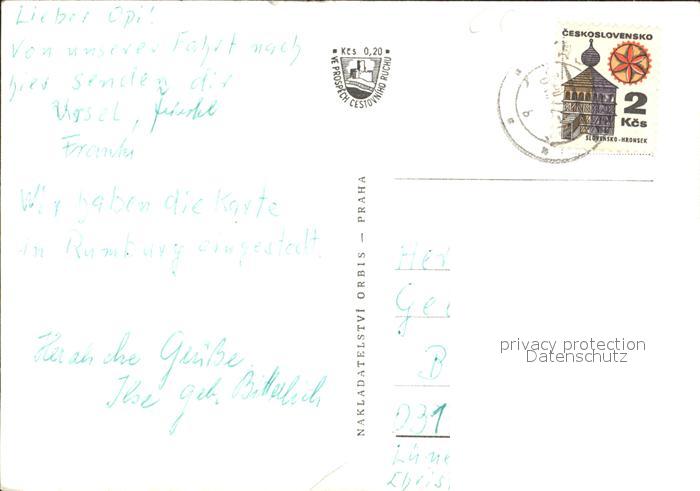 Lieber Opi!
von unserer Fahrt nach
hier senden dir
Ursel,
Frank
Wir haben die Karte
in Rumburg eingesteckt.
Herzliche Grüße
Ilse geb. Bitterlich
Kčs 0,20
VE PROSPĚCH CESTOVNÍHO RUCHU
NAKLADATELSTVÍ ORBIS — PRAHA
ČESKOSLOVENSKO
2
Kčs
SLOVENSKO-HRONSEK
Her
Ge
B
031
Lüne
Chris
privacy protection
Datenschutz